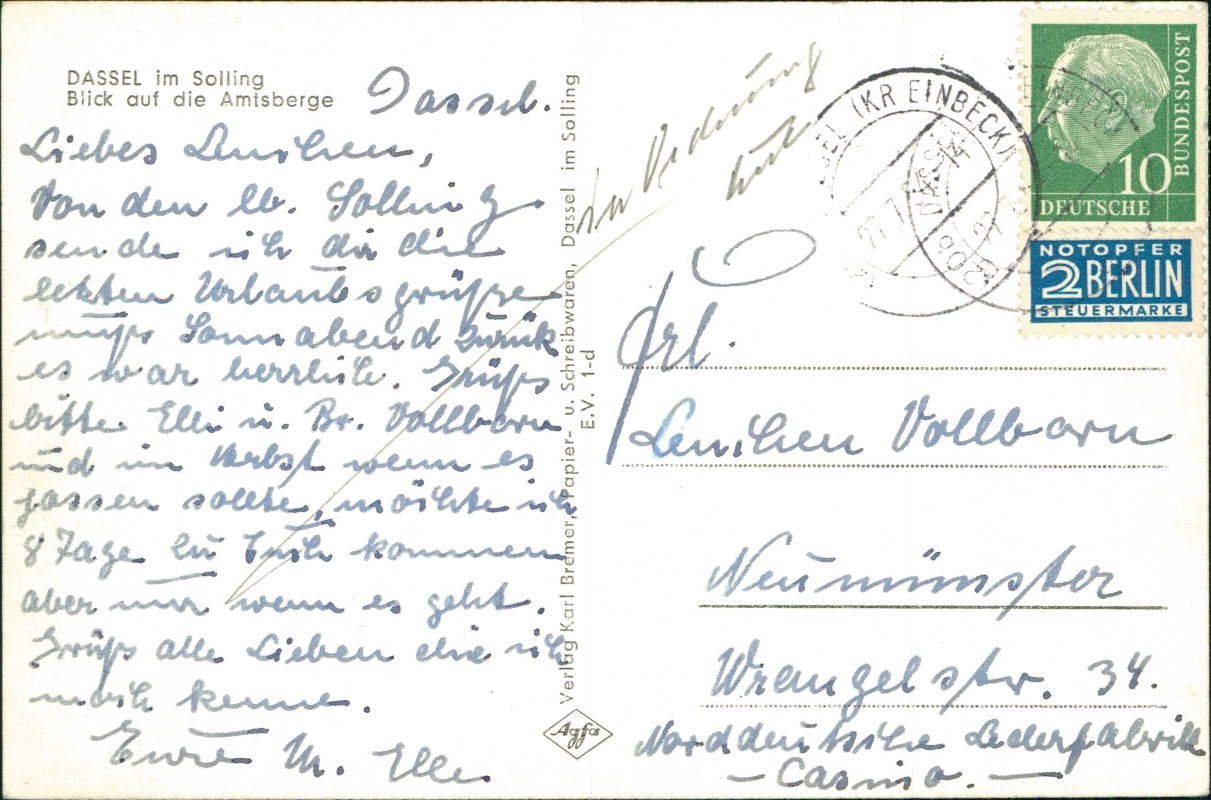 DASSEL im Solling
Blick auf die Amtsberge
Dassel.
Liebes Lenchen,
Von den lb. Solling
sende ich dir die
letzten Urlaubsgrüße
muß Sonnabend zurück
es war herrlich. Grüß
bitte Elli u. Br. Vollborn
und im Herbst wenn es
passen sollte, möchte ich
8 Tage zu Euch kommen
aber nur wenn es geht.
Grüß alle Lieben die ich
noch kenne.
Eure M. Elle
Verlag Karl Bremer, Papier- u. Schreibwaren, Dassel im Solling
E.V. 1-d
Agfa
in Ordnung
(KR EINBECK)
DASSEL
10
DEUTSCHE
BUNDESPOST
NOTOPFER
2 BERLIN
STEUERMARKE
Frl.
Lenchen Vollborn
Neumünster
Wrangelstr. 34.
Norddeutsche Lederfabrik
- Casino. -